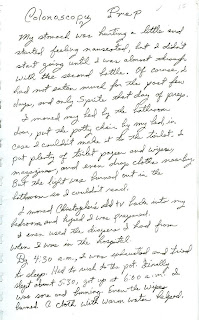 Colonoscopy Prep
My stomach was hurting a little and
started feeling nauseated, but I didn't
start going until I was almost through
with the second bottle. Of course, I
had not eaten much for the past few
days, and only Sprite that day of prep.
I moved my bed by the bathroom
door, put the potty chair by my bed in
case I couldn't make it to the toilet. I
put plenty of toilet paper and wipes,
magazines, and even dry clothes nearby.
But the light was burned out in the
bathroom so I couldn't read.
I moved Christopher's old tv back into my
bedroom and hoped I was prepared.
I even used the diapers I had from
when I was in the hospital
By 4:30 a.m., I was exhausted and tried
to sleep. Had to rush to the pot. Finally
slept about 5:30, got up at 6:00 a.m. I
was sore and burning. Even the wipes
burned. A cloth with warm water helped.